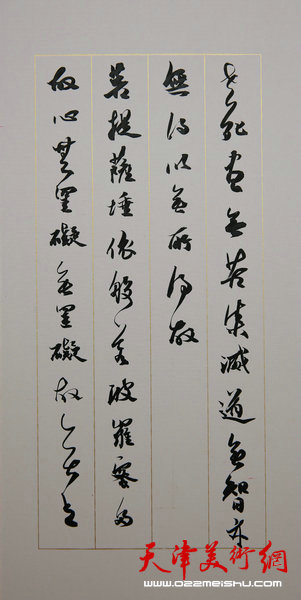 老死盡無苦集滅道無智亦
無得以無所得故
菩提薩埵依般若波羅蜜多
故心無罣礙無罣礙故無有恐
天津美術網
www.022meishu.com